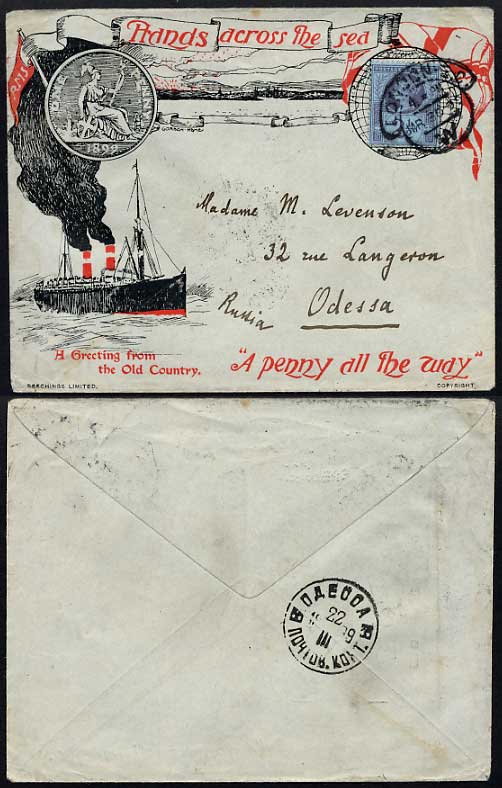 Hands across the sea
1898
Madame M. Levenson
32 rue Langeron
Odessa
Russia
A Greeting from
the Old Country.
"A penny all the way"
BEECHINGS LIMITED.
COPYRIGHT.
ОДЕССА
22
III
ПОЧТОВ. КОНТ.